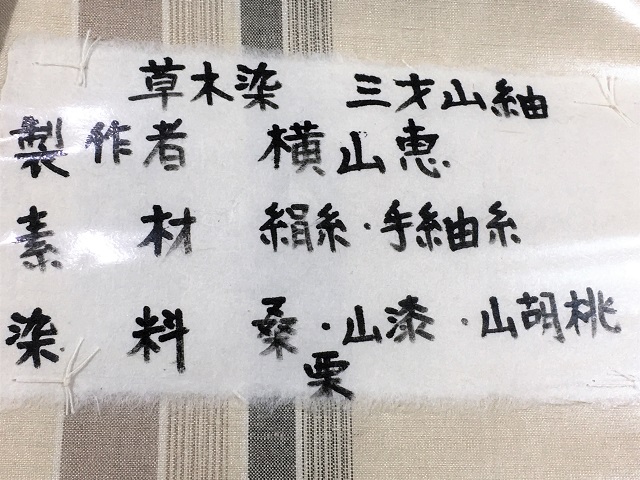 草木染 三才山紬
製作者 横山恵
素材 絹糸・手紬糸
染料 桑・山漆・山胡桃
栗